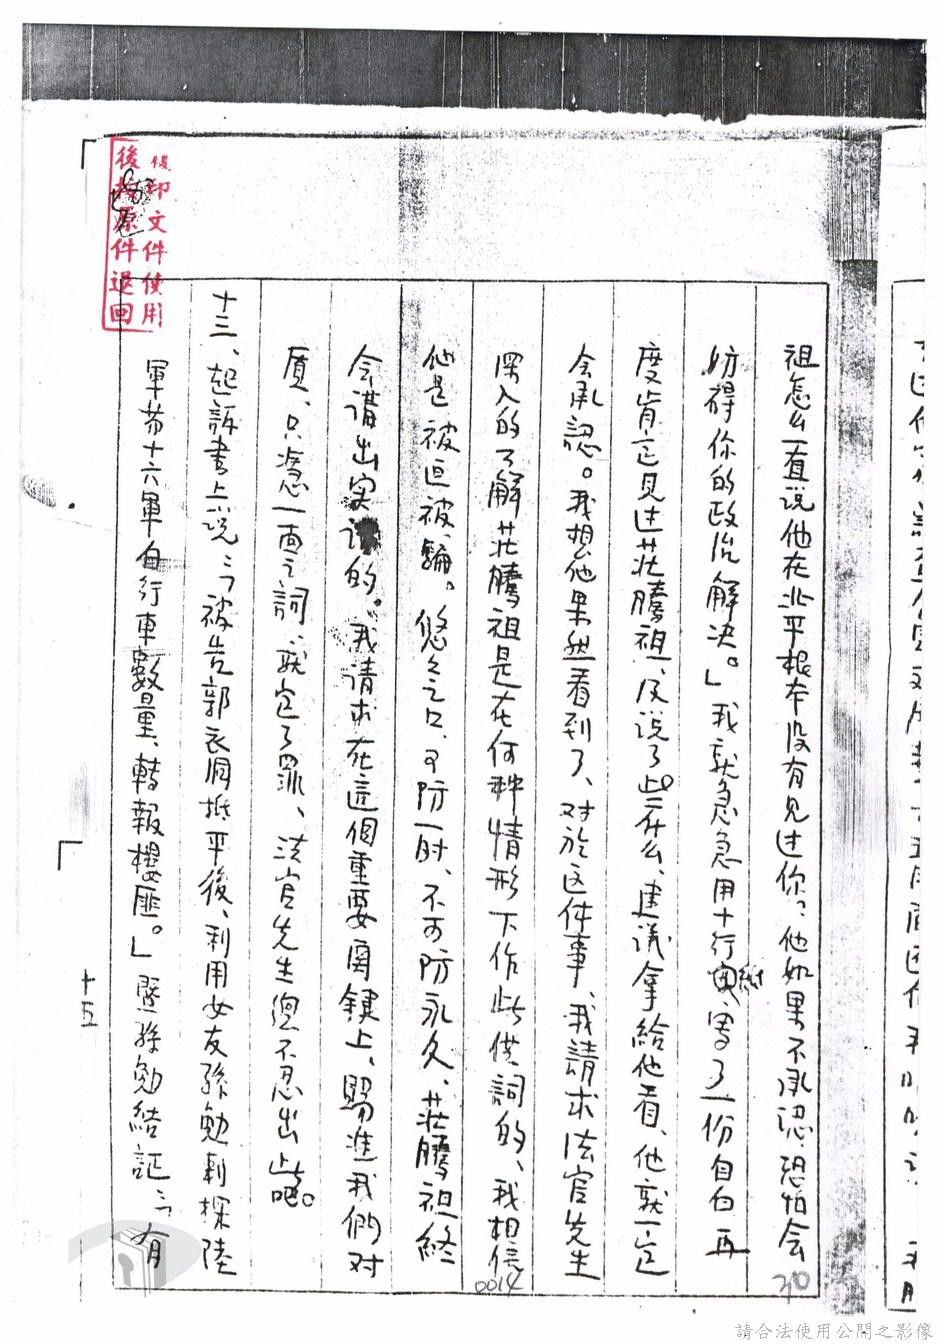 復印文件使用
後按原件退回
祖怎么一直说他在北平根本没有见过你?他如果不承認,恐怕会
妨碍你的政治解决。」我就急急用十行紙、寫了一份自白再
度肯定见过莊騰祖、及说了些什么、建议拿給他看、他就一定
会承認。我想他果然看到了、对於这件事、我請求法官先生
深入的了解莊騰祖是在何种情形下作此供詞的、我相信
他是被迫被騙。悠悠之口、可防一时、不可防永久、莊騰祖終
会講出实话的。我请求在這個重要関鍵上、賜准我們对
質、只憑一面之詞、就定了罪、法官先生總不忍出此吧。
十三、起訴書上说:「被告郭衣洞抵平後、利用女友孫勉刺探陸
軍芀十六軍自行車數量、轉報櫻匪。」歷孫勉結証:「有
十五
30
0014
請合法使用公開之影像